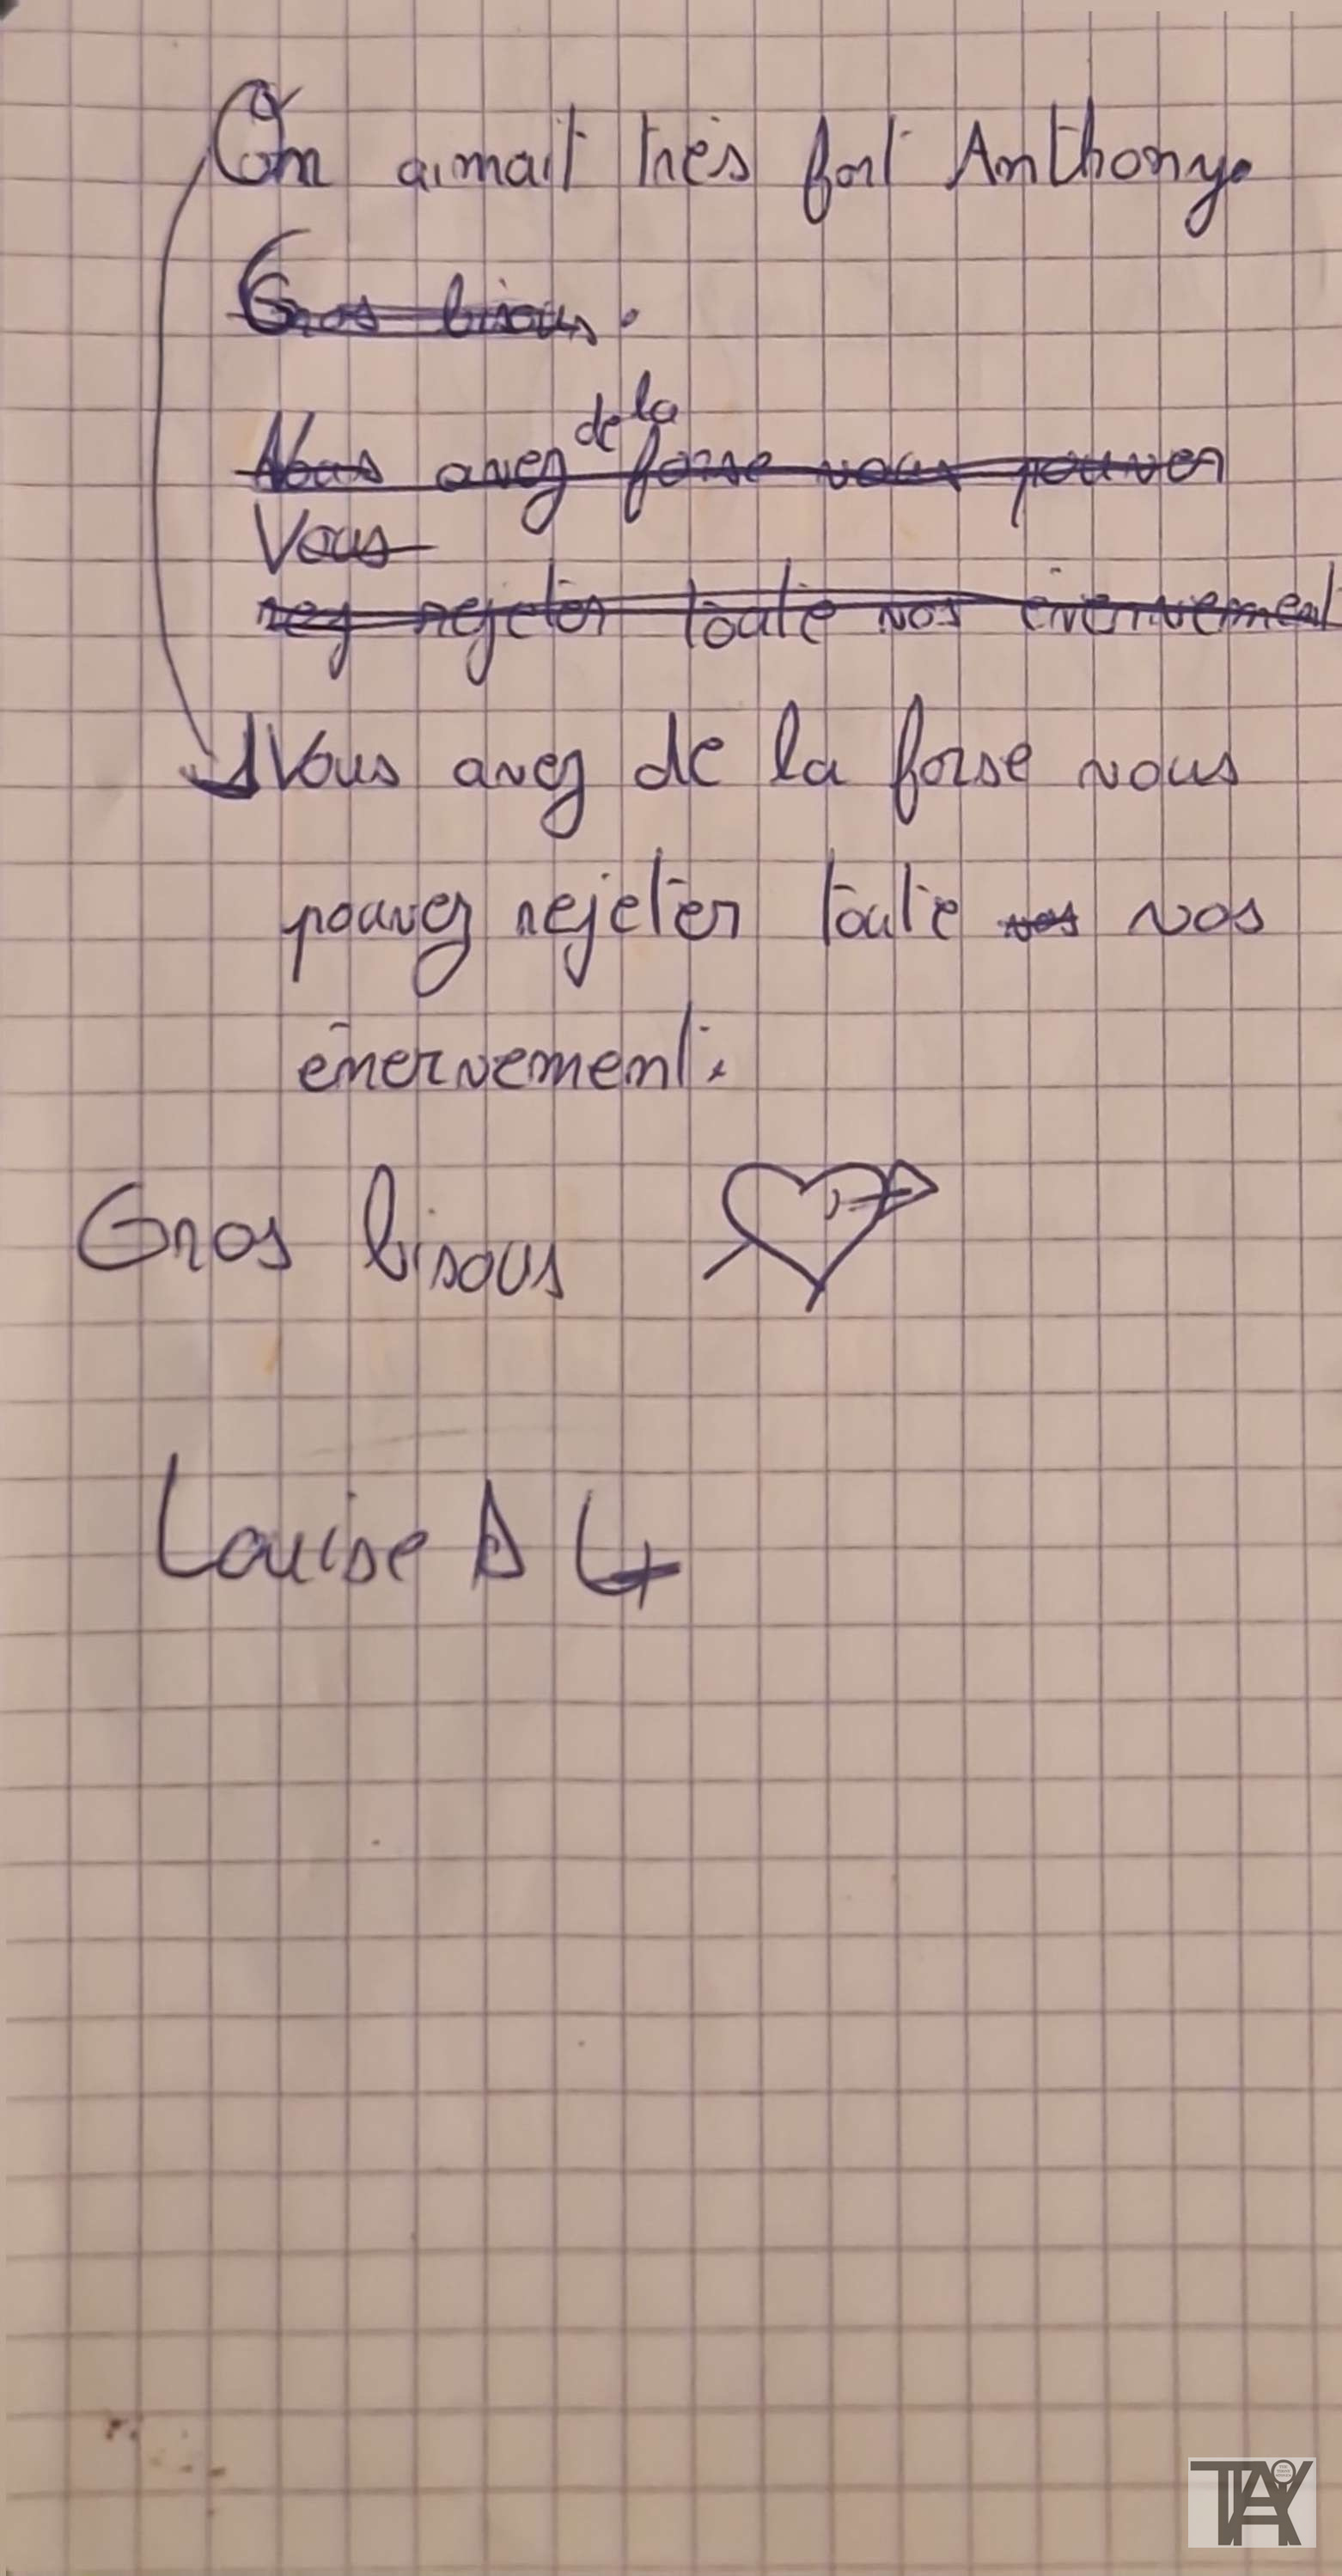 On aimait très fort Anthony.
Gros bisous.
de la
Vous avez forse vous pouver
Vous
rez rejeter toute vos énervement
Vous avez de la forse vous
pouvez rejeter toute vos vos
énervement.
Gros bisous
Louise D
TAY